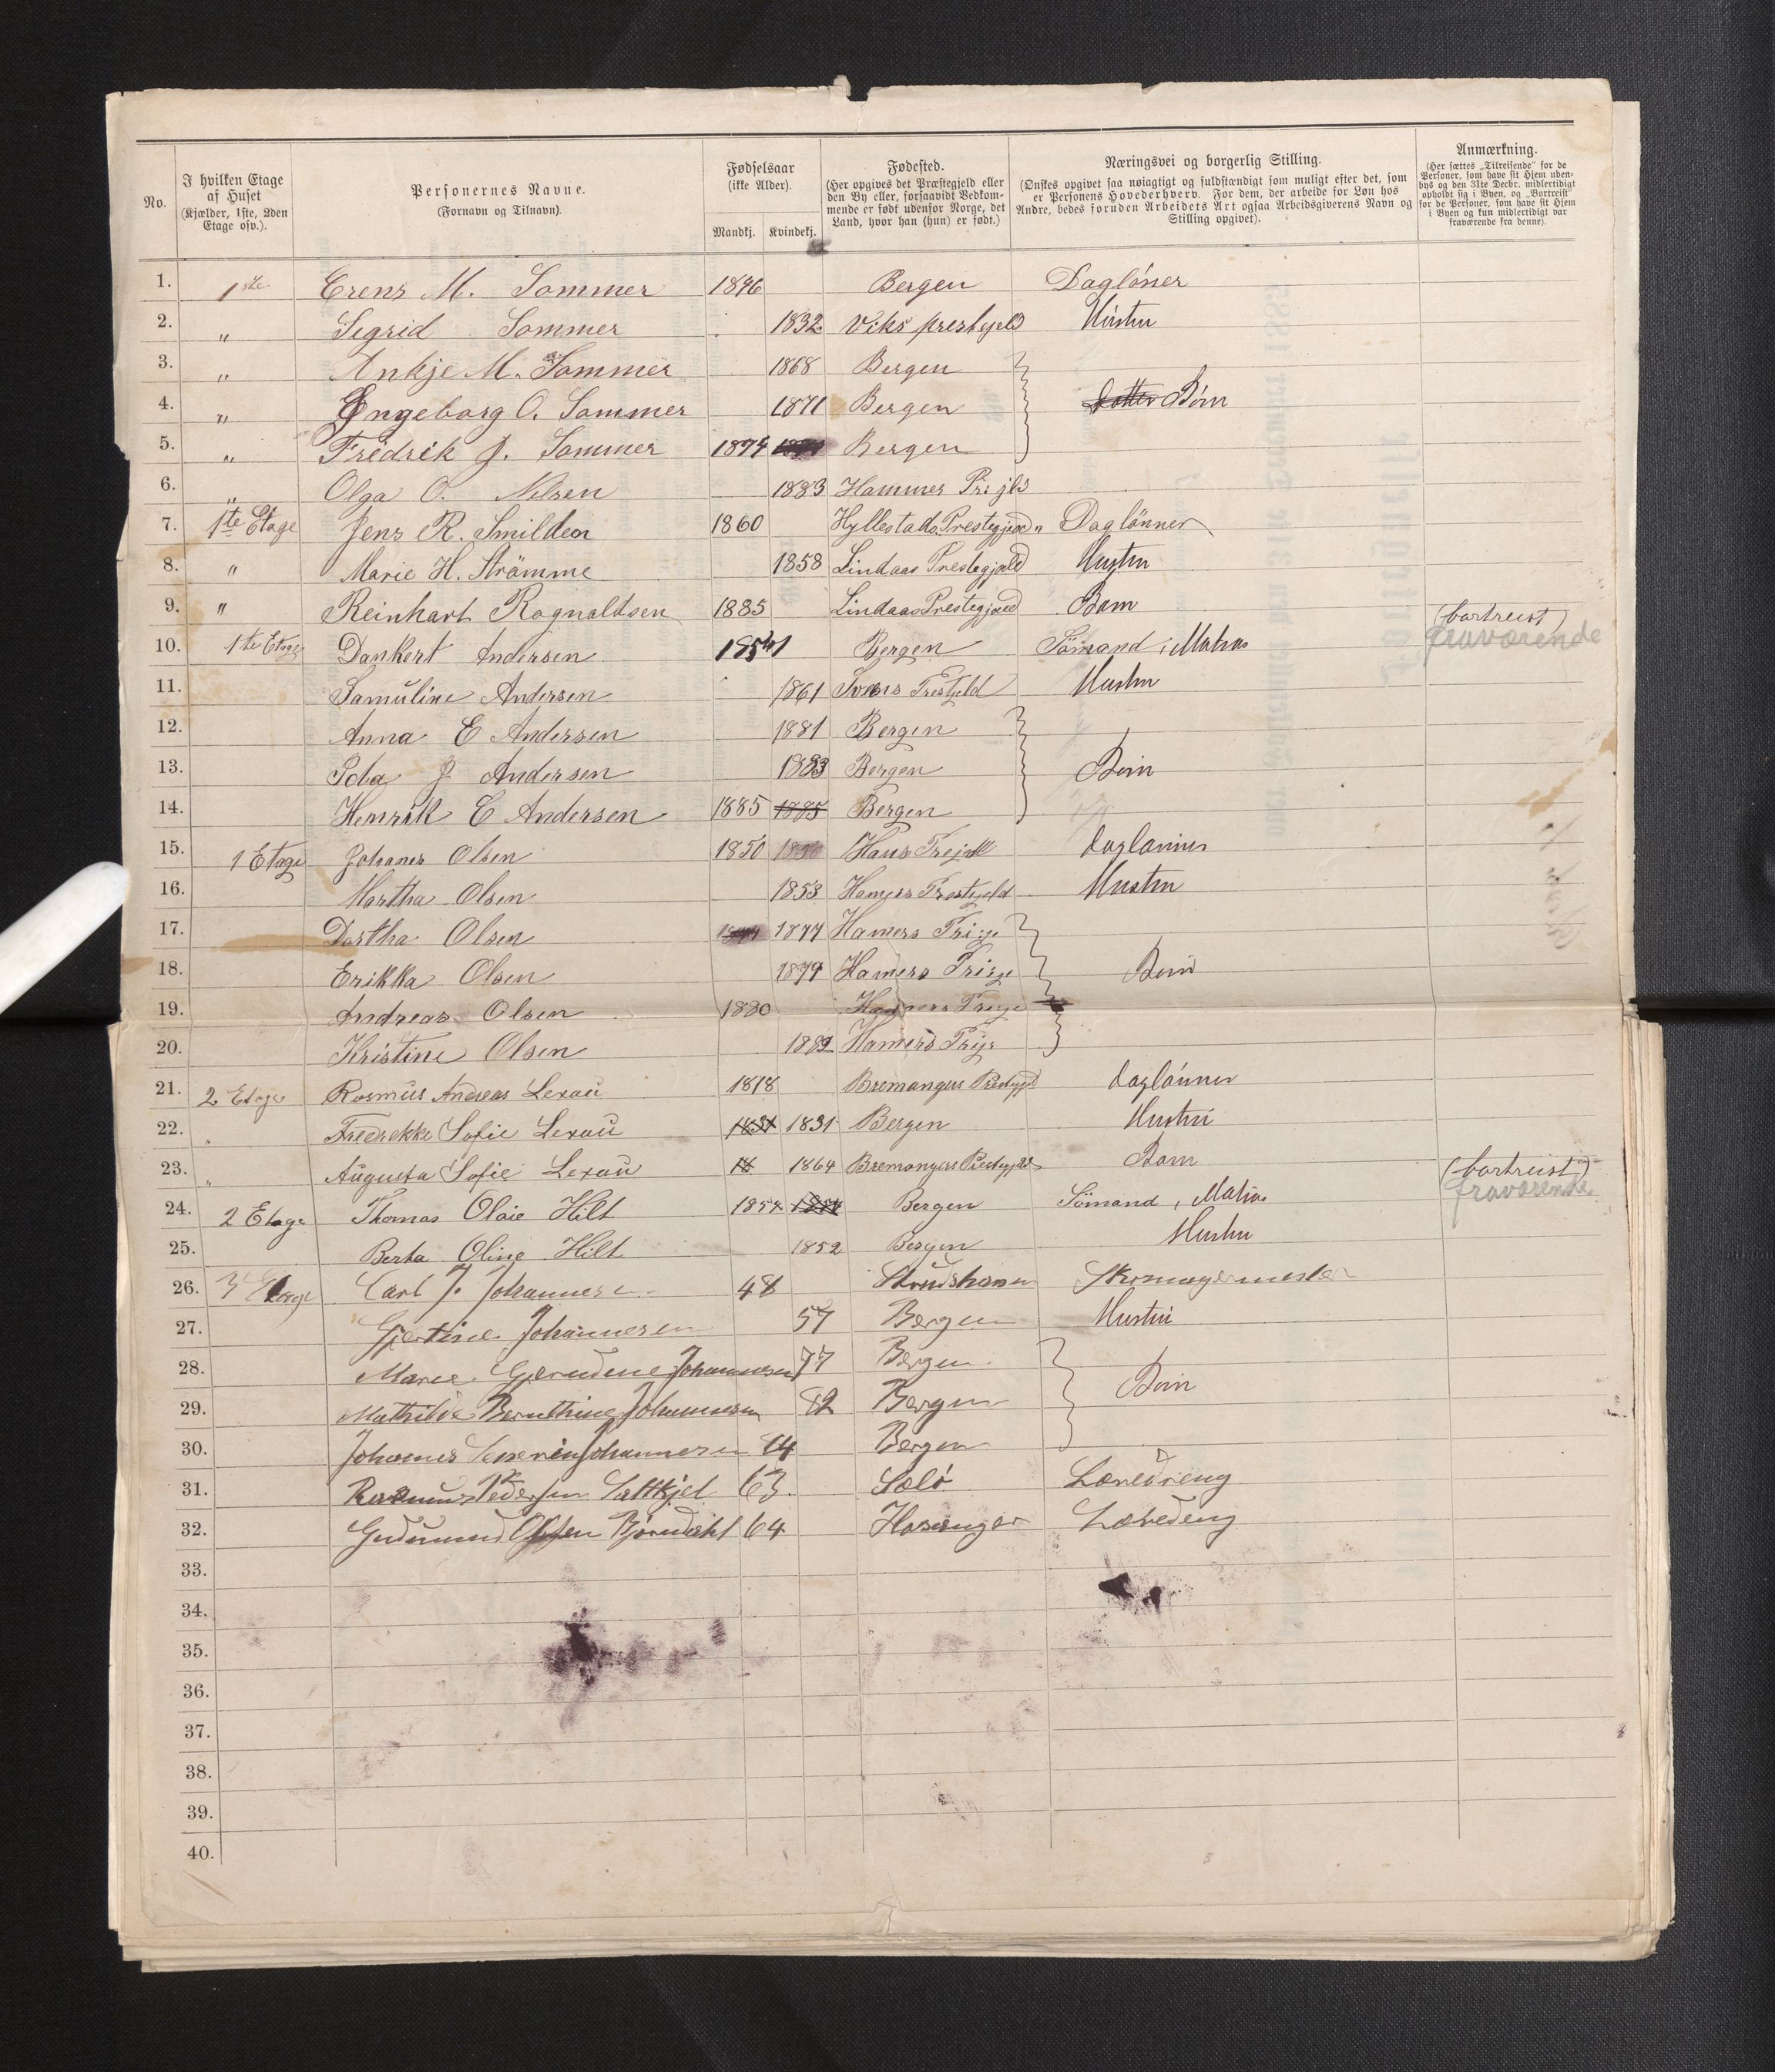 No.
I hvilken Etage af Huset (Kjælder, 1ste, 2den Etage osv.).
Personernes Navne. (Fornavn og Tilnavn).
Fødselsaar (ikke Alder).
Mandkj. Kvindekj.
Fødested. (Her opgives det Præstegjeld eller den By eller, forsaavidt Vedkommende er født udenfor Norge, det Land, hvor han (hun) er født.)
Næringsvei og borgerlig Stilling. (Ønskes opgivet saa nøiagtigt og fuldstændigt som muligt efter det, som er Personens Hovederhverv. For dem, der arbeide for Løn hos Andre, bedes foruden Arbeidets Art ogsaa Arbeidsgiverens Navn og Stilling opgivet).
Anmærkning. (Her sættes „Tilreisende“ for de Personer, som have sit Hjem udenbys og den 31te Decbr. midlertidigt opholdt sig i Byen, og „Bortreist“ for de Personer, som have sit Hjem i Byen og kun midlertidigt var fraværende fra denne).
1. 1ste Erens M. Sommer 1846 Bergen Dagløner
2. " Segrid Sommer 1832 Viks prestgjeld Hustru
3. " Ankje M. Sommer 1868 Bergen
4. " Engeborg O. Sommer 1871 Bergen Datter Børn
5. " Fredrik J. Sommer 1874 Bergen
6. " Olga O. Nelsen 1883 Hammer Pr:gld
7. 1te Etage Jens R. Smildeon 1860 Hyllestads Prestegjeld Daglönner
8. " Marie H. Strömme 1858 Lindaas Prestegjæld Hustru
9. " Reinhart Ragnaldsen 1885 Lindaas Prestegjæld Barn
10. 1te Etage Dankert Andersen 1854 Bergen Sömand, Matros (bortreist) fraværende
11. Samuline Andersen 1861 Prestgjeld Hustru
12. Anna E Andersen 1881 Bergen
13. J Andersen 1883 Bergen Børn
14. Henrik E Andersen 1885 1885 Bergen
15. 1 Etage Johanes Olsen 1850 Haus Daglønner
16. Martha Olsen 1853 Hamers Prestgjeld Hustru
17. Dortha Olsen 1877 Hamers
18. Erikka Olsen 1879 Hamers Børn
19. Andreas Olsen 1880 Hamers
20. Kristine Olsen 1882 Hamers
21. 2 Etage Rasmus Andreas Lexau 1818 Bremangers Prestegjeld Daglønner
22. " Fredrekke Sofie Lexau 1831 1831 Bergen Hustru
23. " Augusta Sofie Lexau 18 1864 Bremangers Prestegjeld Barn
24. 2 Etage Thomas Olaie Hilt 1854 1854 Bergen Sömand, Matros (bortreist) fraværende
25. Berta Oline Hilt 1852 Bergen Hustru
26. 3 Etage Carl J. Johannesen 48 Skomagermester
27. Gjertine Johannesen 57 Bergen Hustru
28. Marie Johannesen 77 Bergen
29. Mathilde Johannesen 82 Bergen Børn
30. Johannes Severin Johannesen 84 Bergen
31. Rasmus Pedersen 63 Læredreng
32. Gudmund Olsen 64 Læredreng
33.
34.
35.
36.
37.
38.
39.
40.